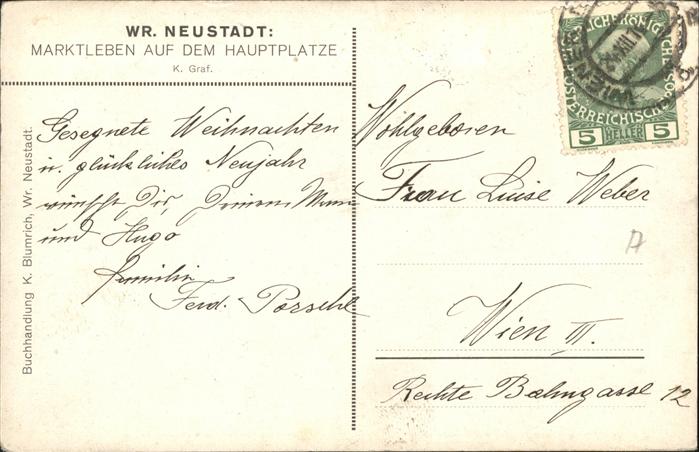 WR. NEUSTADT:
MARKTLEBEN AUF DEM HAUPTPLATZE
K. Graf.
Gesegnete Weihnachten
u. glückliches Neujahr
wünscht Dir, Deinem Mann
und Hugo
Familie
Ferd. Porsche
Buchhandlung K. Blumrich, Wr. Neustadt.
5 HELLER 5
WIENER
Wohlgeboren
Frau Luise Weber
Wien III.
Rechte Bahngasse 12